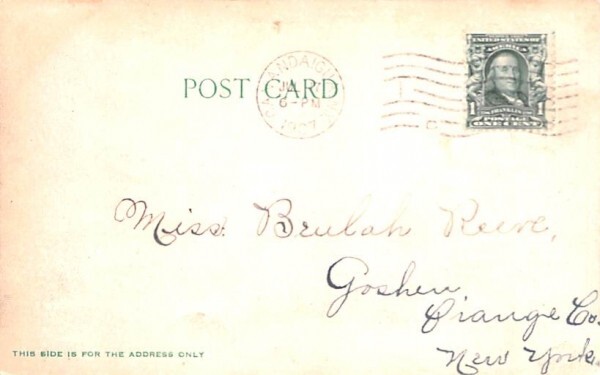 UNITED STATES OF
AMERICA
POST CARD
6-PM
1907
FRANKLIN
1 POSTAGE 1
ONE CENT
Miss. Beulah Reeve,
Goshen
Orange Co.
New York.
THIS SIDE IS FOR THE ADDRESS ONLY